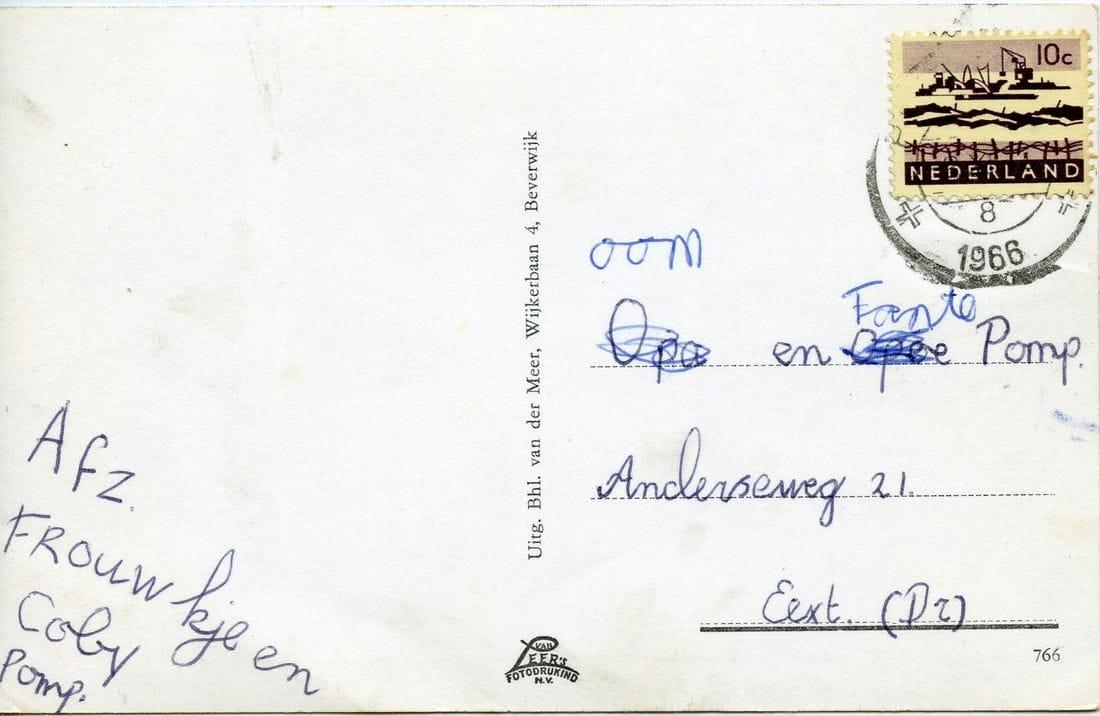 10c
NEDERLAND
8
1966
Uitg. Bhl. van der Meer, Wijkerbaan 4, Beverwijk
oom
Tante
Opa en Opoe Pomp.
Anderseweg 21.
Eext. (Dr)
Afz.
FROUWkje en
Coby
Pomp.
VAN
LEER'S
FOTODRUKIND
N.V.
766